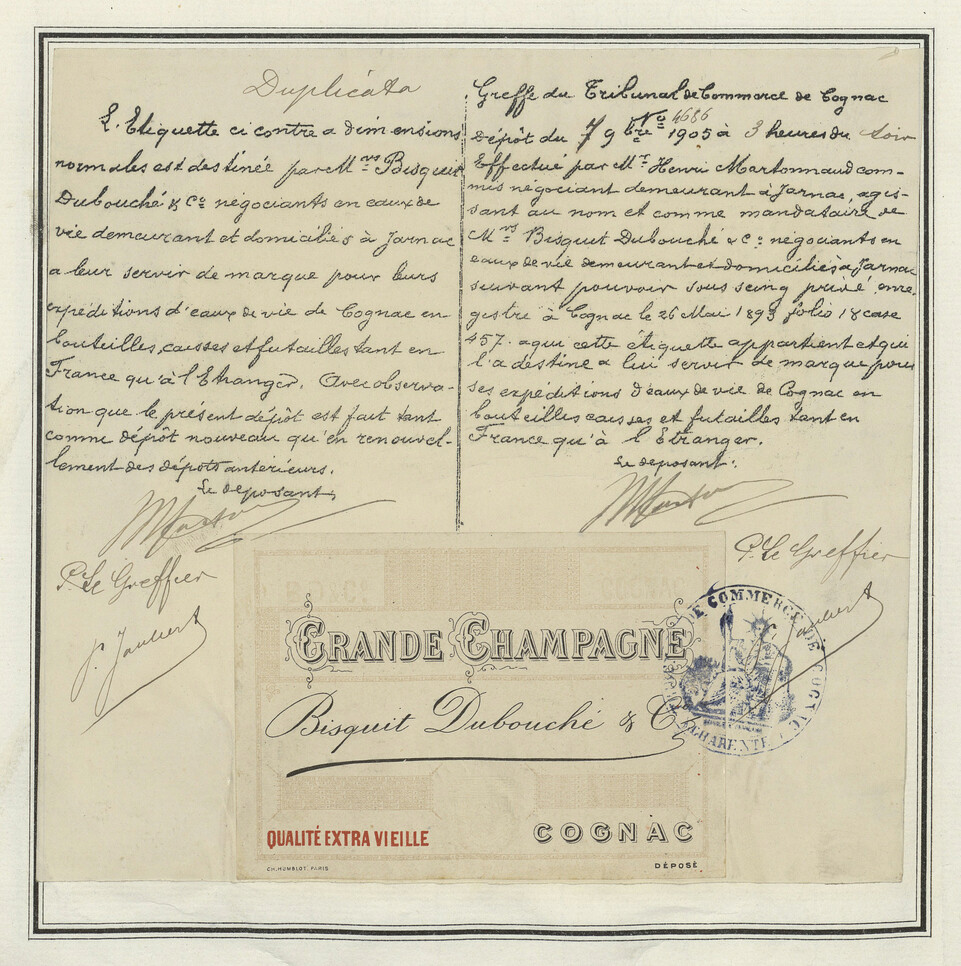 Duplicata
L'Etiquette ci contre a dimensions
normales est destinée par Mrs Bisquit
Dubouché & Co négociants en eaux de
vie demeurant et domiciliés à Jarnac
a leur servir de marque pour leurs
expéditions d'eaux de vie de Cognac en
bouteilles, caisses et futailles tant en
France qu'à l'Etranger. Avec observa-
tion que le présent dépôt est fait tant
comme dépôt nouveau qu'en renouvel-
lement des dépots antérieurs.
Le deposant,
P. Le Greffier
P. Jaubert
Greffe du Tribunal de Commerce de Cognac
No 4686
Dépôt du 7 9bre 1905 à 3 heures du soir
Effectué par Mr Henri Martonnaud com-
mis négociant demeurant à Jarnac, agis-
sant au nom et comme mandataire de
Mrs Bisquit Dubouché & Co négociants en
eaux de vie demeurant et domiciliés à Jarnac
suivant pouvoir sous seing privé enre
gistré à Cognac le 26 Mai 1893 folio 18 case
457. a qui cette étiquette appartient et qui
l'a destine a lui servir de marque pour
ses expéditions d'eaux de vie de Cognac en
bouteilles caisses et futailles tant en
France qu'à l'Etranger.
Le deposant:
P. Le Greffier
Jaubert
GRANDE CHAMPAGNE
Bisquit Dubouché & Co
QUALITÉ EXTRA VIEILLE
COGNAC
CH. HUMBLOT, PARIS
DÉPOSÉ
DE COMMERCE DE COGNAC
CHARENTE